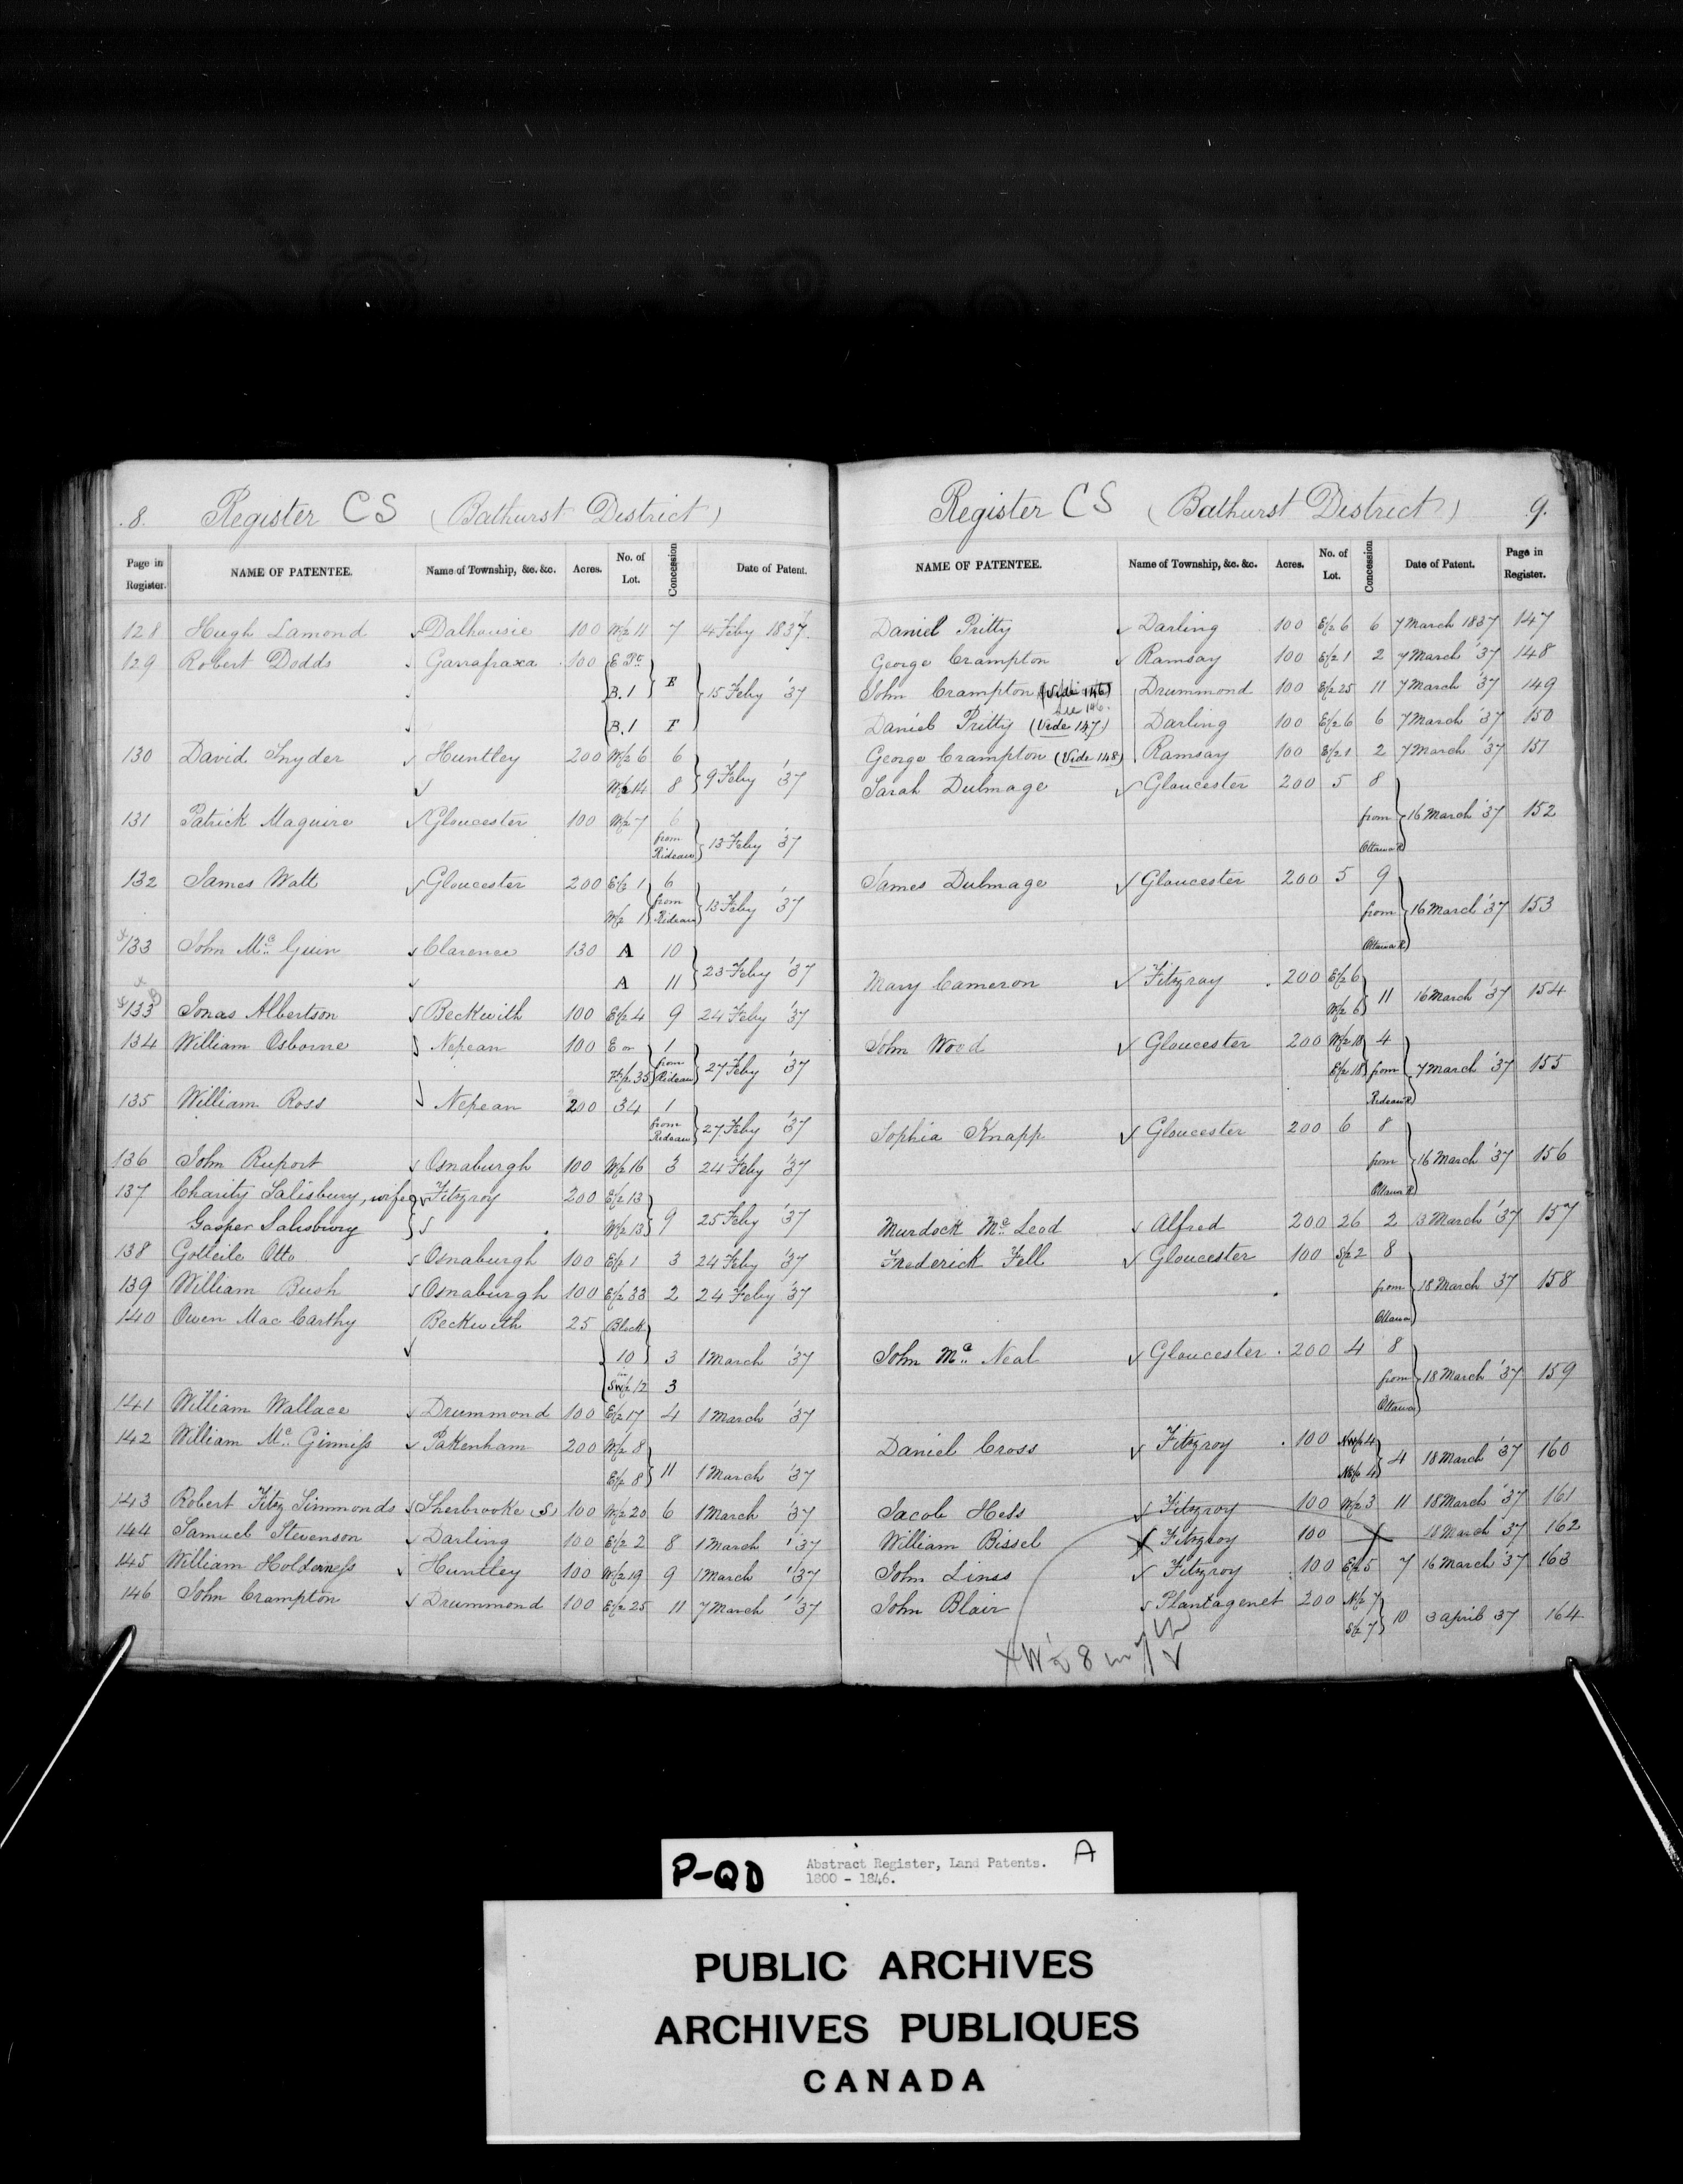 8. Register CS (Bathurst District)
Page in Register. NAME OF PATENTEE. Name of Township, &c. &c. Acres. No. of Lot. Concession Date of Patent.
128 Hugh Lamond Dalhousie 100 W½ 11 7 14 Feby 1837.
129 Robert Dodds Garrafraxa 100 E Pt
B. 1 E 15 Feby '37
B. 1 F
130 David Snyder Huntley 200 W½ 6 6
W½ 14 8 9 Feby '37
131 Patrick Maguire Gloucester 100 W½ 7 6
from Rideau 13 Feby '37
132 James Watt Gloucester 200 E½ 1 6
W½ 1 from Rideau 13 Feby '37
133 John Mc Guin Clarence 130 A 10
A 11 23 Feby '37
133 Jonas Albertson Beckwith 100 E½ 4 9 24 Feby '37
134 William Osborne Nepean 100 E or 1
F½ 35 from Rideau 27 Feby '37
135 William Ross Nepean 200 34 1
from Rideau 27 Feby '37
136 John Ruport Osnaburgh 100 W½ 16 3 24 Feby '37
137 Charity Salisbury, wife Fitzroy 200 E½ 13
Gasper Salisbury W½ 13 9 25 Feby '37
138 Gotleib Otto Osnaburgh 100 E½ 1 3 24 Feby '37
139 William Bush Osnaburgh 100 E½ 33 2 24 Feby '37
140 Owen Mac Carthy Beckwith 25 Block
10 3 1 March '37
in SW½ 12 3
141 William Wallace Drummond 100 E½ 17 4 1 March '37
142 William Mc Ginniss Pakenham 200 W½ 8
E½ 8 11 1 March '37
143 Robert Fitz Simmonds Sherbrooke (S) 100 W½ 20 6 1 March '37
144 Samuel Stevenson Darling 100 E½ 2 8 1 March '37
145 William Holderness Huntley 100 W½ 19 9 1 March '37
146 John Crampton Drummond 100 E½ 25 11 7 March '37
Register CS (Bathurst District) 9.
NAME OF PATENTEE. Name of Township, &c. &c. Acres. No. of Lot. Concession Date of Patent. Page in Register.
Daniel Pritty Darling 100 E½ 6 6 7 March 1837 147
George Crampton Ramsay 100 E½ 1 2 7 March '37 148
John Crampton (Vide 146) Drummond 100 E½ 25 11 7 March '37 149
see 146.
Daniel Pritty (Vide 147) Darling 100 E½ 6 6 7 March '37 150
George Crampton (Vide 148) Ramsay 100 E½ 1 2 7 March '37 151
Sarah Dulmage Gloucester 200 5 8
from 16 March '37 152
Ottawa R
James Dulmage Gloucester 200 5 9
from 16 March '37 153
Ottawa R.
Mary Cameron Fitzroy 200 E½ 6
W½ 6 11 16 March '37 154
John Wood Gloucester 200 W½ 18 4
E½ 18 from 7 March '37 155
Rideau R
Sophia Knapp Gloucester 200 6 8
from 16 March '37 156
Ottawa R
Murdock Mc Leod Alfred 200 26 2 13 March '37 157
Frederick Fell Gloucester 100 S½ 2 8
from 18 March 37 158
Ottawa
John Mc Neal Gloucester 200 4 8
from 18 March '37 159
Ottawa
Daniel Cross Fitzroy 100 NW½ 4
NE½ 4 4 18 March '37 160
Jacob Hess Fitzroy 100 W½ 3 11 18 March '37 161
William Bissel Fitzroy 100 X 18 March 37 162
John Linss Fitzroy 100 E½ 5 7 16 March '37 163
John Blair Plantagenet 200 N½ 7
S½ 7 10 3 april 37 164
X W½ 8 in
P-QD Abstract Register, Land Patents. A
1800 - 1846.
PUBLIC ARCHIVES
ARCHIVES PUBLIQUES
CANADA